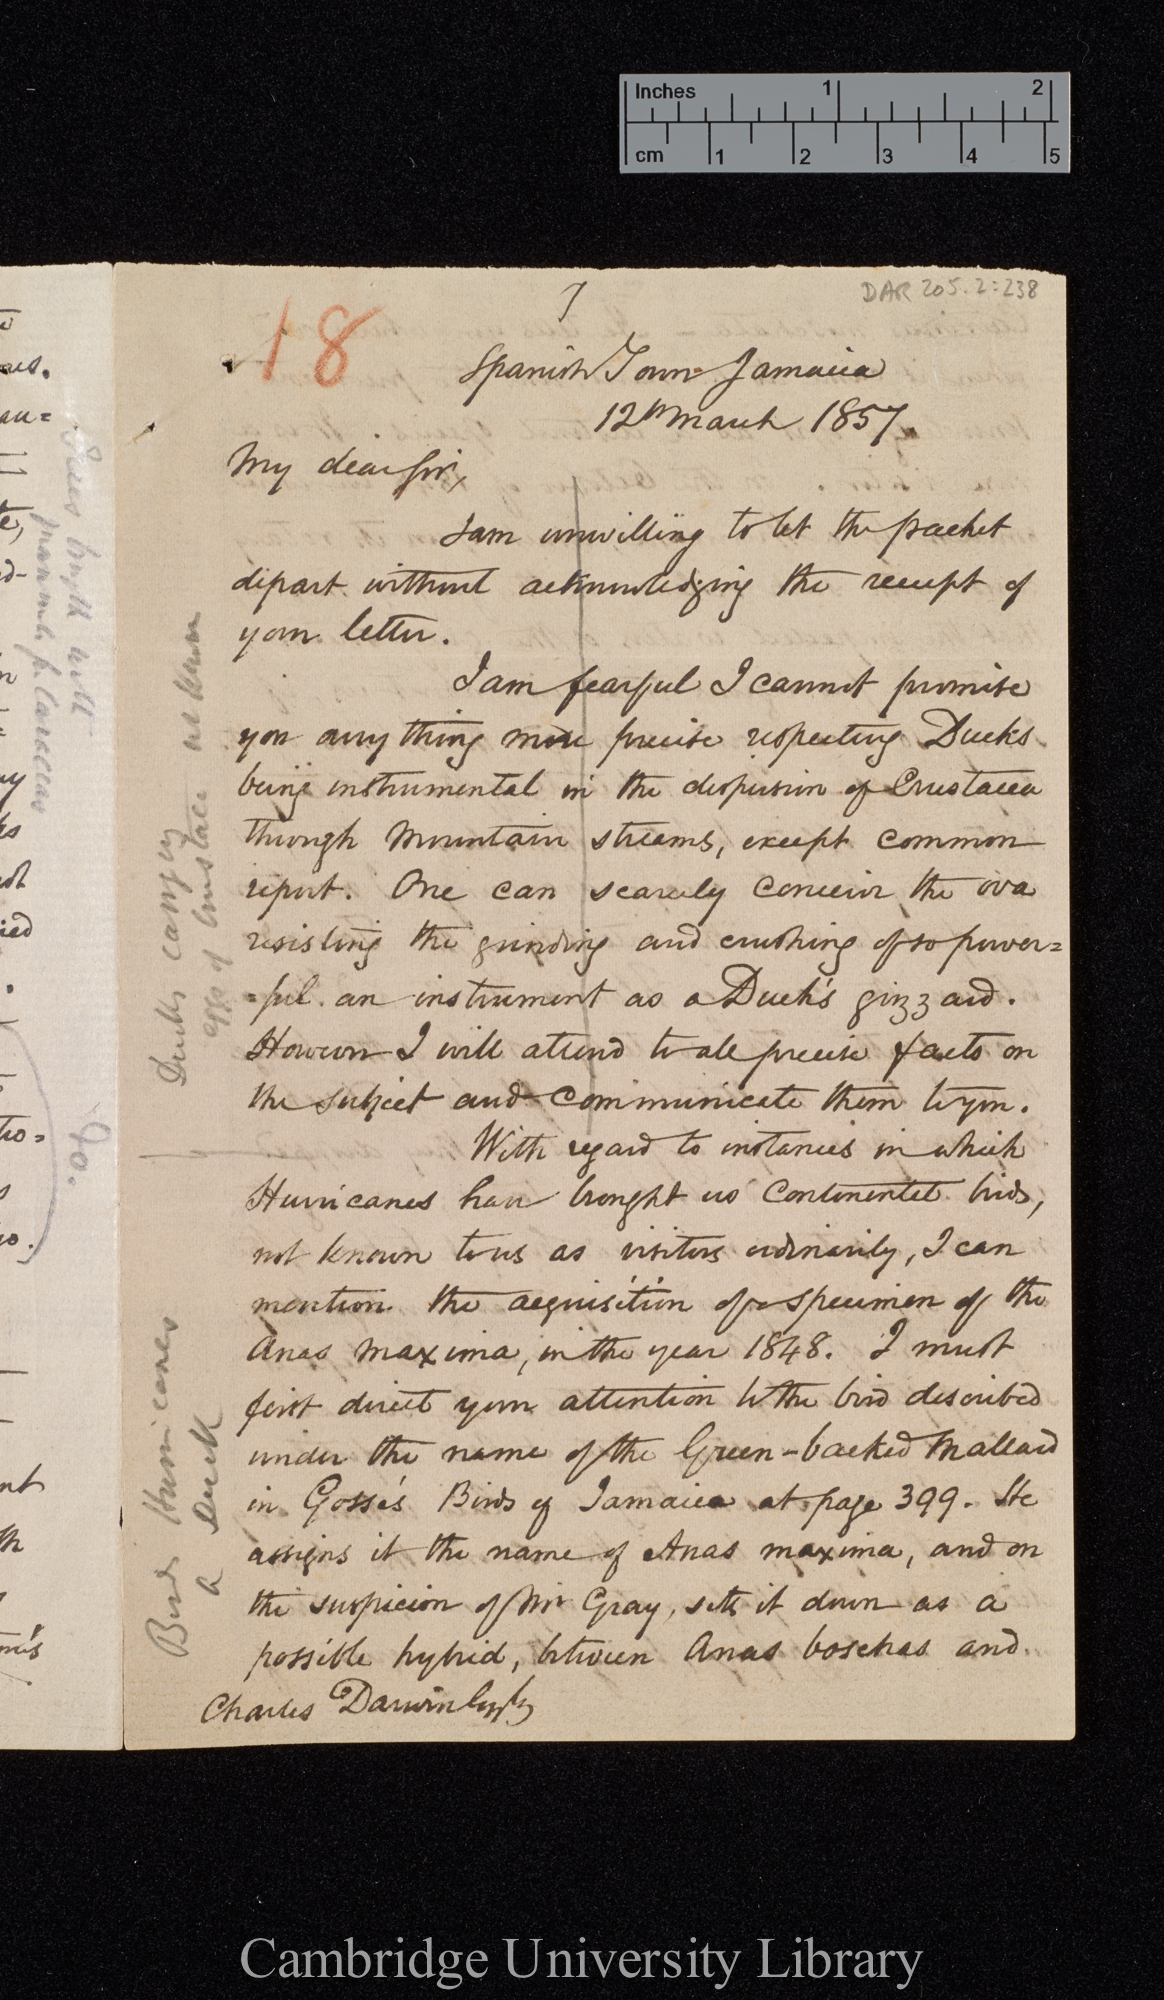 Inches 1 2
cm 1 2 3 4 5
DAR 205.2:238
18
Spanish Town Jamaica
12th March 1857.
My dear Sir,
I am unwilling to let the packet
depart without acknowledging the receipt of
your letter.
I am fearful I cannot promise
you any thing more precise respecting Ducks
being instrumental in the dispersion of Crustacea
through Mountain streams, except common
report. One can scarcely conceive the ova
resisting the grinding and crushing of so power=
=ful an instrument as a Duck's gizzard.
However I will attend to all precise facts on
the subject and communicate them to you.
With regard to instances in which
Hurricanes have brought us Continental birds,
not known to us as visitors ordinarily, I can
mention the acquisition of a specimen of the
Anas maxima, in the year 1848. I must
first direct your attention to the bird described
under the name of the Green-backed Mallard
in Gosse's Birds of Jamaica at page 399. He
assigns it the name of Anas maxima, and on
the suspicion of Mr Gray, sets it down as a
possible hybrid, between Anas boschas and
Charles Darwin Esqr
Ducks carrying
eggs of Crustacea
Birds Hurricanes
a Duck
Cambridge University Library